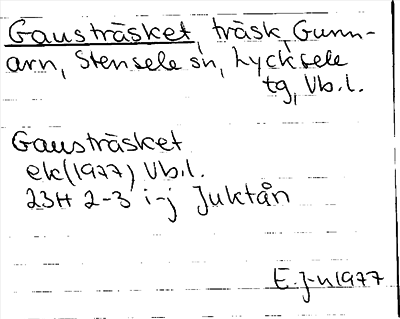 Gausträsket, träsk, Gunn-
arn, Stensele sn, Lycksele
tg, Vb.l.
Gausträsket
ek(1977) Vb.l.
23H 2-3 i-j Juktån
E.J-n 1977